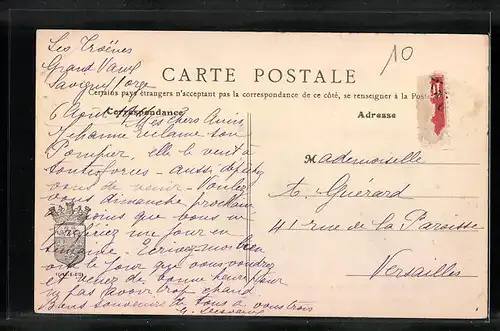 Les Troënes
Grand Vaux
Savigny s/orge
10
CARTE POSTALE
Certains pays étrangers n'acceptant pas la correspondance de ce côté, se renseigner à la Poste
Correspondance
Adresse
6 Août Mes chers Amis
Jehanne réclame son
Pompier, elle le veut à
toutes forces - aussi, dépêchez
vous de venir - Voulez
vous dimanche prochain
moins que vous ne
un jour en
semaine - Écrivez-moi bien
le jour que vous voudrez
et venez de bonne heure pour
n'y pas avoir trop chaud
bons souvenirs de tous à vous trois
Mademoiselle
A. Guérard
41 rue de la Paroisse
Versailles